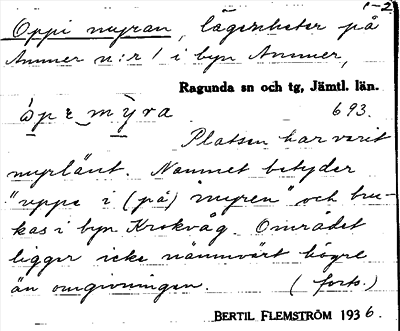 1-2
Oppi myran, lägenheter på
Ammer n:r 1 i byn Ammer,
Ragunda sn och tg, Jämtl. län.
693.
Platsen har varit
myrlänt. Namnet betyder
"uppe i (på) myren" och bru-
kas i byn Krokvåg. Området
ligger icke nämnvärt högre
än omgivningen. (forts.)
BERTIL FLEMSTRÖM 1936.